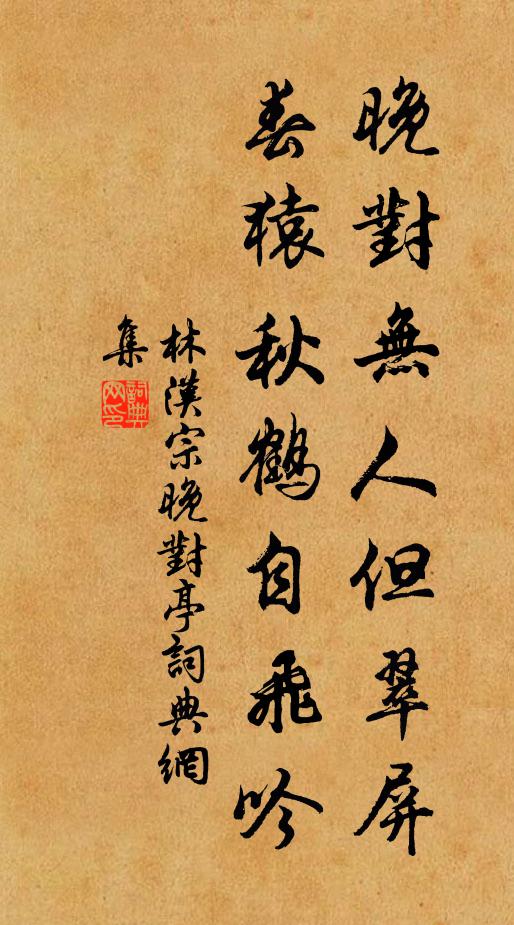 晚對無人但翠屏
春猿秋鶴自飛吟
林漢宗晚對亭詞典網
集
詞典網印